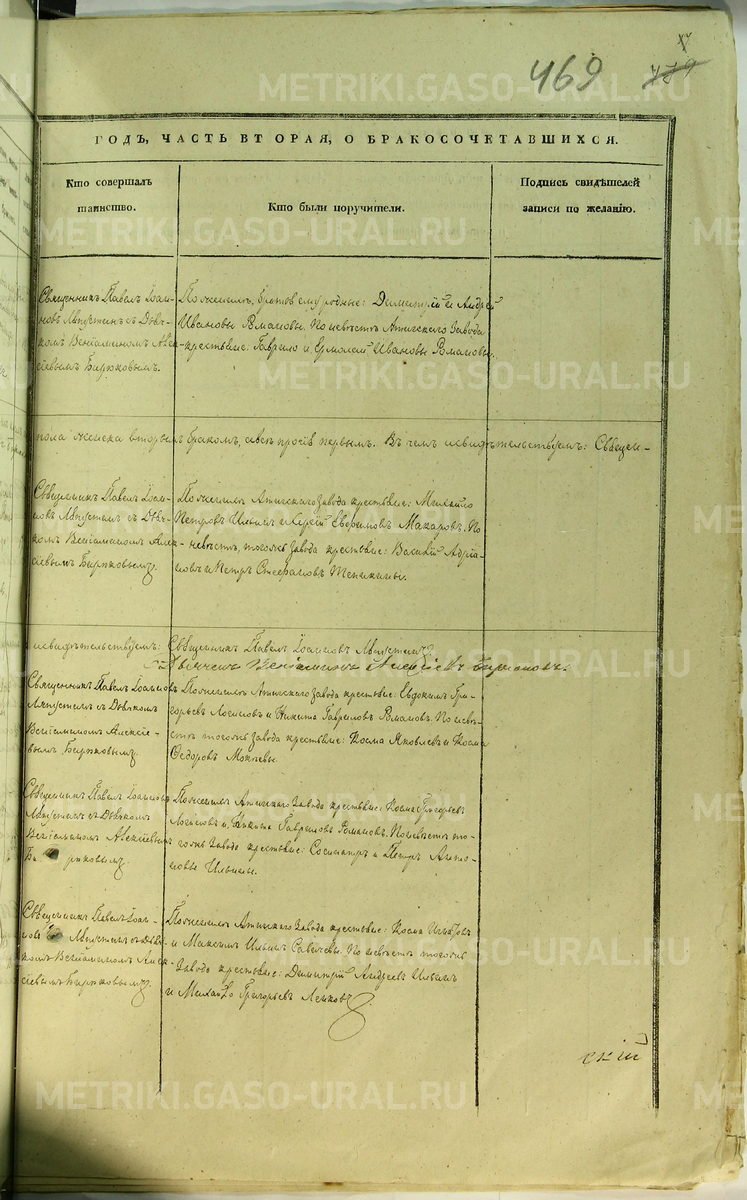 469
ГОДЪ, ЧАСТЬ ВТОРАЯ, О БРАКОСОЧЕТАВШИХСЯ.
Кто совершалъ
таинство.
Кто были поручители.
Подпись свидѣтелей
записи по желанію.
Священникъ Павелъ Іоан-
новъ Ляпустинъ съ Дьяч-
комъ Веніаминомъ Алек-
сѣевымъ Бирюковымъ.
По женихѣ, братья ему родные: Димитрій и Андрей
Ивановы Романовы. По невѣстѣ Атигскаго Завода
крестьяне: Гаврило и Ермолай Ивановы Романовы.
вторымъ бракомъ, первымъ. Въ чемъ и свидѣтельствуемъ: Священ-
Священникъ Павелъ Іоан-
новъ Ляпустинъ съ Дьяч-
комъ Веніаминомъ Алек-
сѣевымъ Бирюковымъ
По женихѣ Атигскаго Завода крестьяне: Михайло
Петровъ Ильинъ и Макаровъ. По
невѣстѣ, тогожъ Завода крестьяне: Василій Адріа-
новъ и Петръ Стефановъ
и свидѣтельствуемъ: Священникъ Павелъ Іоанновъ Ляпустинъ
Дьячекъ Веніаминъ Алексѣевъ Бирюковъ.
Священникъ Павелъ Іоанновъ
Ляпустинъ съ Дьячкомъ
Веніаминомъ Алексѣе-
вымъ Бирюковымъ
По женихѣ Атигскаго Завода крестьяне: Евдокимъ Гри-
горьевъ и Никита Гавриловъ Романовъ. По невѣс-
тѣ тогожъ Завода крестьяне: Косма Яковлевъ и Косма
Федоровъ
Священникъ Павелъ Іоанновъ
Ляпустинъ съ Дьячкомъ
Веніаминомъ Алексѣевымъ
Бирюковымъ
По женихѣ Атигскаго Завода крестьяне: Косма Григорьевъ
и Никита Гавриловъ Романовъ. По невѣстѣ то-
гожъ Завода крестьяне: и Петръ Анто-
новы Ильины.
Священникъ Павелъ Іоан-
новъ Ляпустинъ съ Дьяч-
комъ Веніаминомъ Алек-
сѣевымъ Бирюковымъ
По женихѣ Атигскаго Завода крестьяне: Косма
и Максимъ Ильинъ По невѣстѣ тогожъ
Завода крестьяне: Димитрій Андреевъ Ильинъ
и Михайло Григорьевъ
скій
METRIKI.GASO-URAL.RU